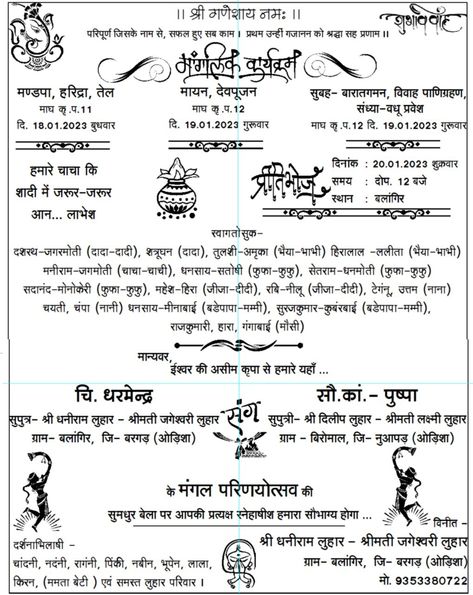 ।। श्री गणेशाय नमः ।।
शुभ विवाह
परिपूर्ण जिसके नाम से, सफल हुए सब काम । प्रथम उन्हीं गजानन को श्रद्धा सह प्रणाम ।।
मांगलिक कार्यक्रम
मण्डपा, हरिद्रा, तेल
माघ कृ.प.11
दि. 18.01.2023 बुधवार
मायन, देवपूजन
माघ कृ.प.12
दि. 19.01.2023 गुरूवार
सुबह– बारातगमन, विवाह पाणिग्रहण,
संध्या-वधू प्रवेश
माघ कृ.प.12 दि. 19.01.2023 गुरूवार
हमारे चाचा कि
शादी में जरूर-जरूर
आन... लाभेश
प्रीतिभोज
दिनांक : 20.01.2023 शुक्रवार
समय : दोप. 12 बजे
स्थान : बलांगिर
स्वागतोसुक-
दशरथ-जगरमोती (दादा-दादी), शत्रूघन (दादा), तुलशी-अमृका (भैया-भाभी) हिरालाल -ललीता (भैया-भाभी)
मनीराम-जगमोती (चाचा-चाची), धनसाय-सतोषी (फुफा-फुफु), सेतराम-धनमोती (फुफा-फुफु)
सदानंद-मोनोकेरी (फुफा-फुफु), महेश-हिरा (जीजा-दीदी), रबि-नीलू (जीजा-दीदी), टेगंनू, उत्तम (नाना)
चयती, चंपा (नानी) धनसाय-मीनाबाई (बडेपापा-मम्मी), सुरजकुमार-कुबंरबाई (बडेपापा-मम्मी),
राजकुमारी, हारा, गंगाबाई (मौसी)
मान्यवर,
ईश्वर की असीम कृपा से हमारे यहाँ ...
चि. धरमेन्द्र
सुपुत्र- श्री धनीराम लुहार - श्रीमती जगेश्वरी लुहार
ग्राम- बलांगिर, जि- बरगड़ (ओड़िशा)
संग
सौ.कां.- पुष्पा
सुपुत्री- श्री दिलीप लुहार - श्रीमती लक्ष्मी लुहार
ग्राम - बिरोमाल, जि- नुआपड़ (ओड़िशा)
के मंगल परिणयोत्सव की
सुमधुर बेला पर आपकी प्रत्यक्ष स्नेहाषीश हमारा सौभाग्य होगा ...
दर्शनाभिलाषी -
चांदनी, नदंनी, रागंनी, पिंकी, नबीन, भूपेन, लाला,
किरन, (ममता बेटी ) एवं समस्त लुहार परिवार ।
विनीत -
श्री धनीराम लुहार - श्रीमती जगेश्वरी लुहार
ग्राम- बलांगिर, जि- बरगड़ (ओड़िशा)
मो. 9353380722